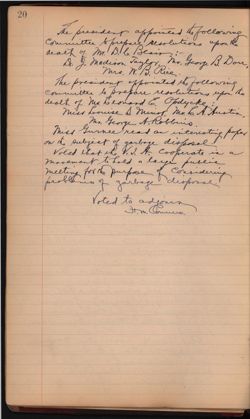 20
The president appointed the following
Committee to prepare resolutions upon the
death of Mr D. C.
Dr. J. Madison Taylor, Mr. George B Dorr,
Mrs. W. B. Rice.
The president appointed the following
committee to prepare resolutions upon the
death of Mr Leonard E. Opdycke:
Miss Louise Minot, Mr. C. A. Austin,
Mr. George A. Robbins.
Miss Gurnee read an interesting paper
on the subject of garbage disposal
Voted that the V. I. A. Cooperate in a
movement to hold a large public
meeting for the purpose of considering
problems of garbage disposal.
Voted to adjourn